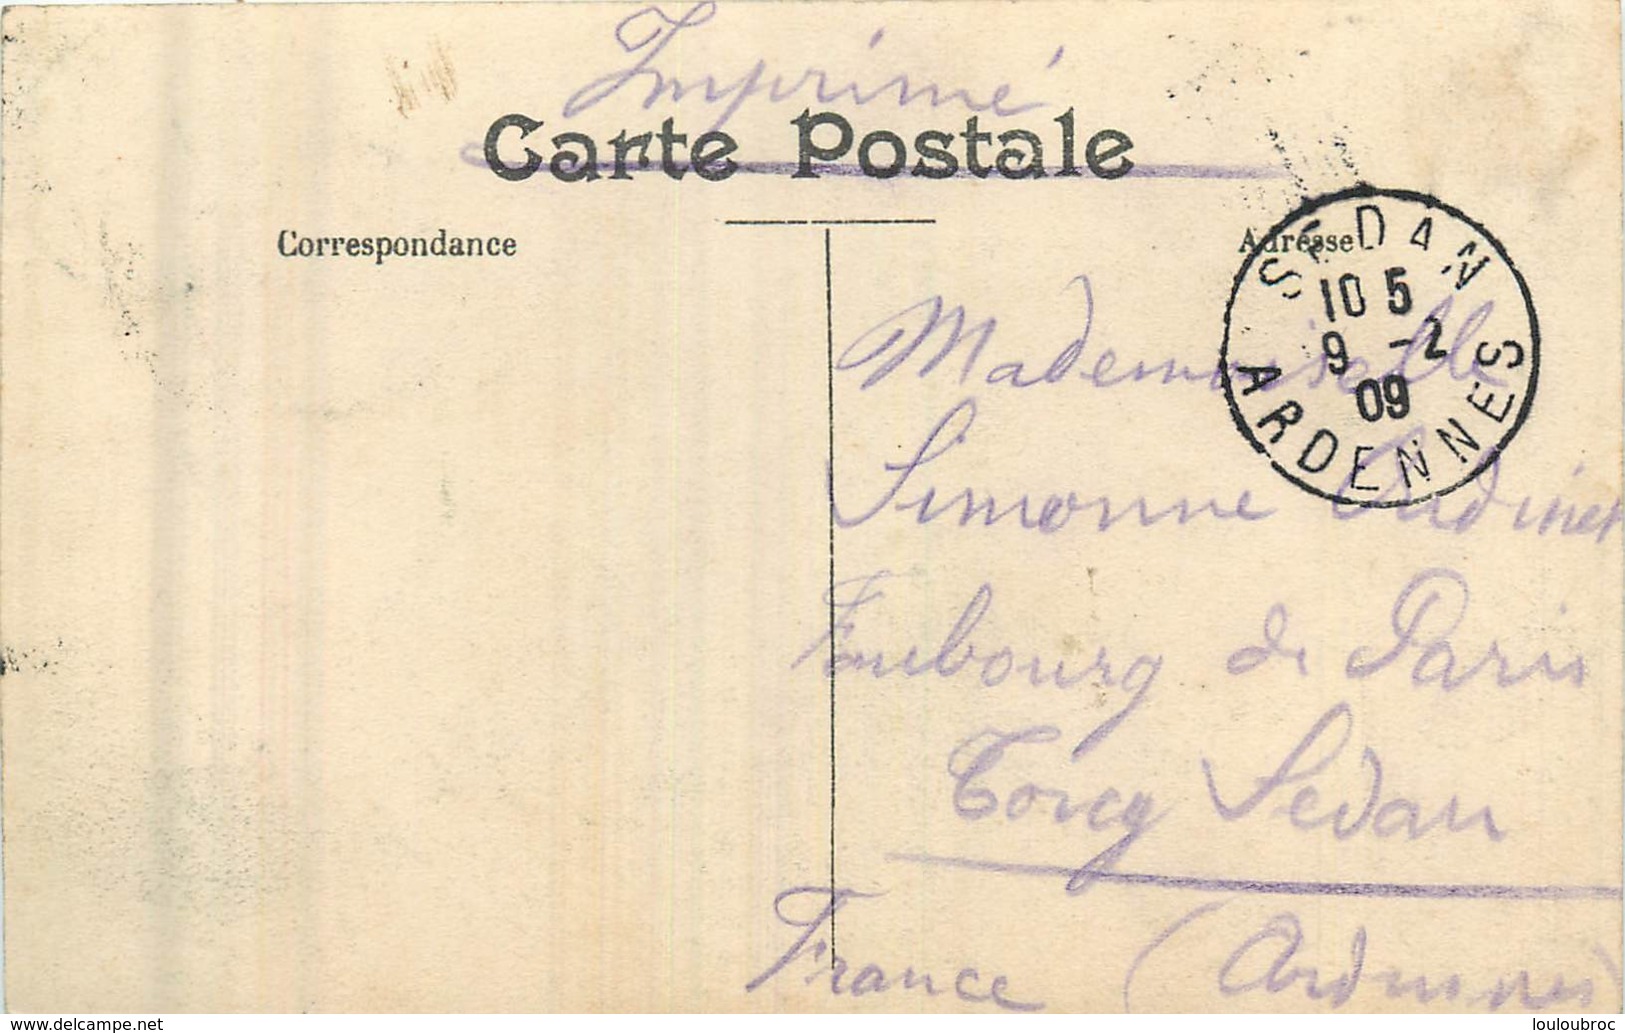 Imprimé
Carte Postale
Correspondance
Adresse
SEDAN
10 5
9 -2
09
ARDENNES
Mademoiselle
Simonne
Faubourg de Paris
Torcy Sedan
France (Ardennes)
delcampe.net
louloubroc